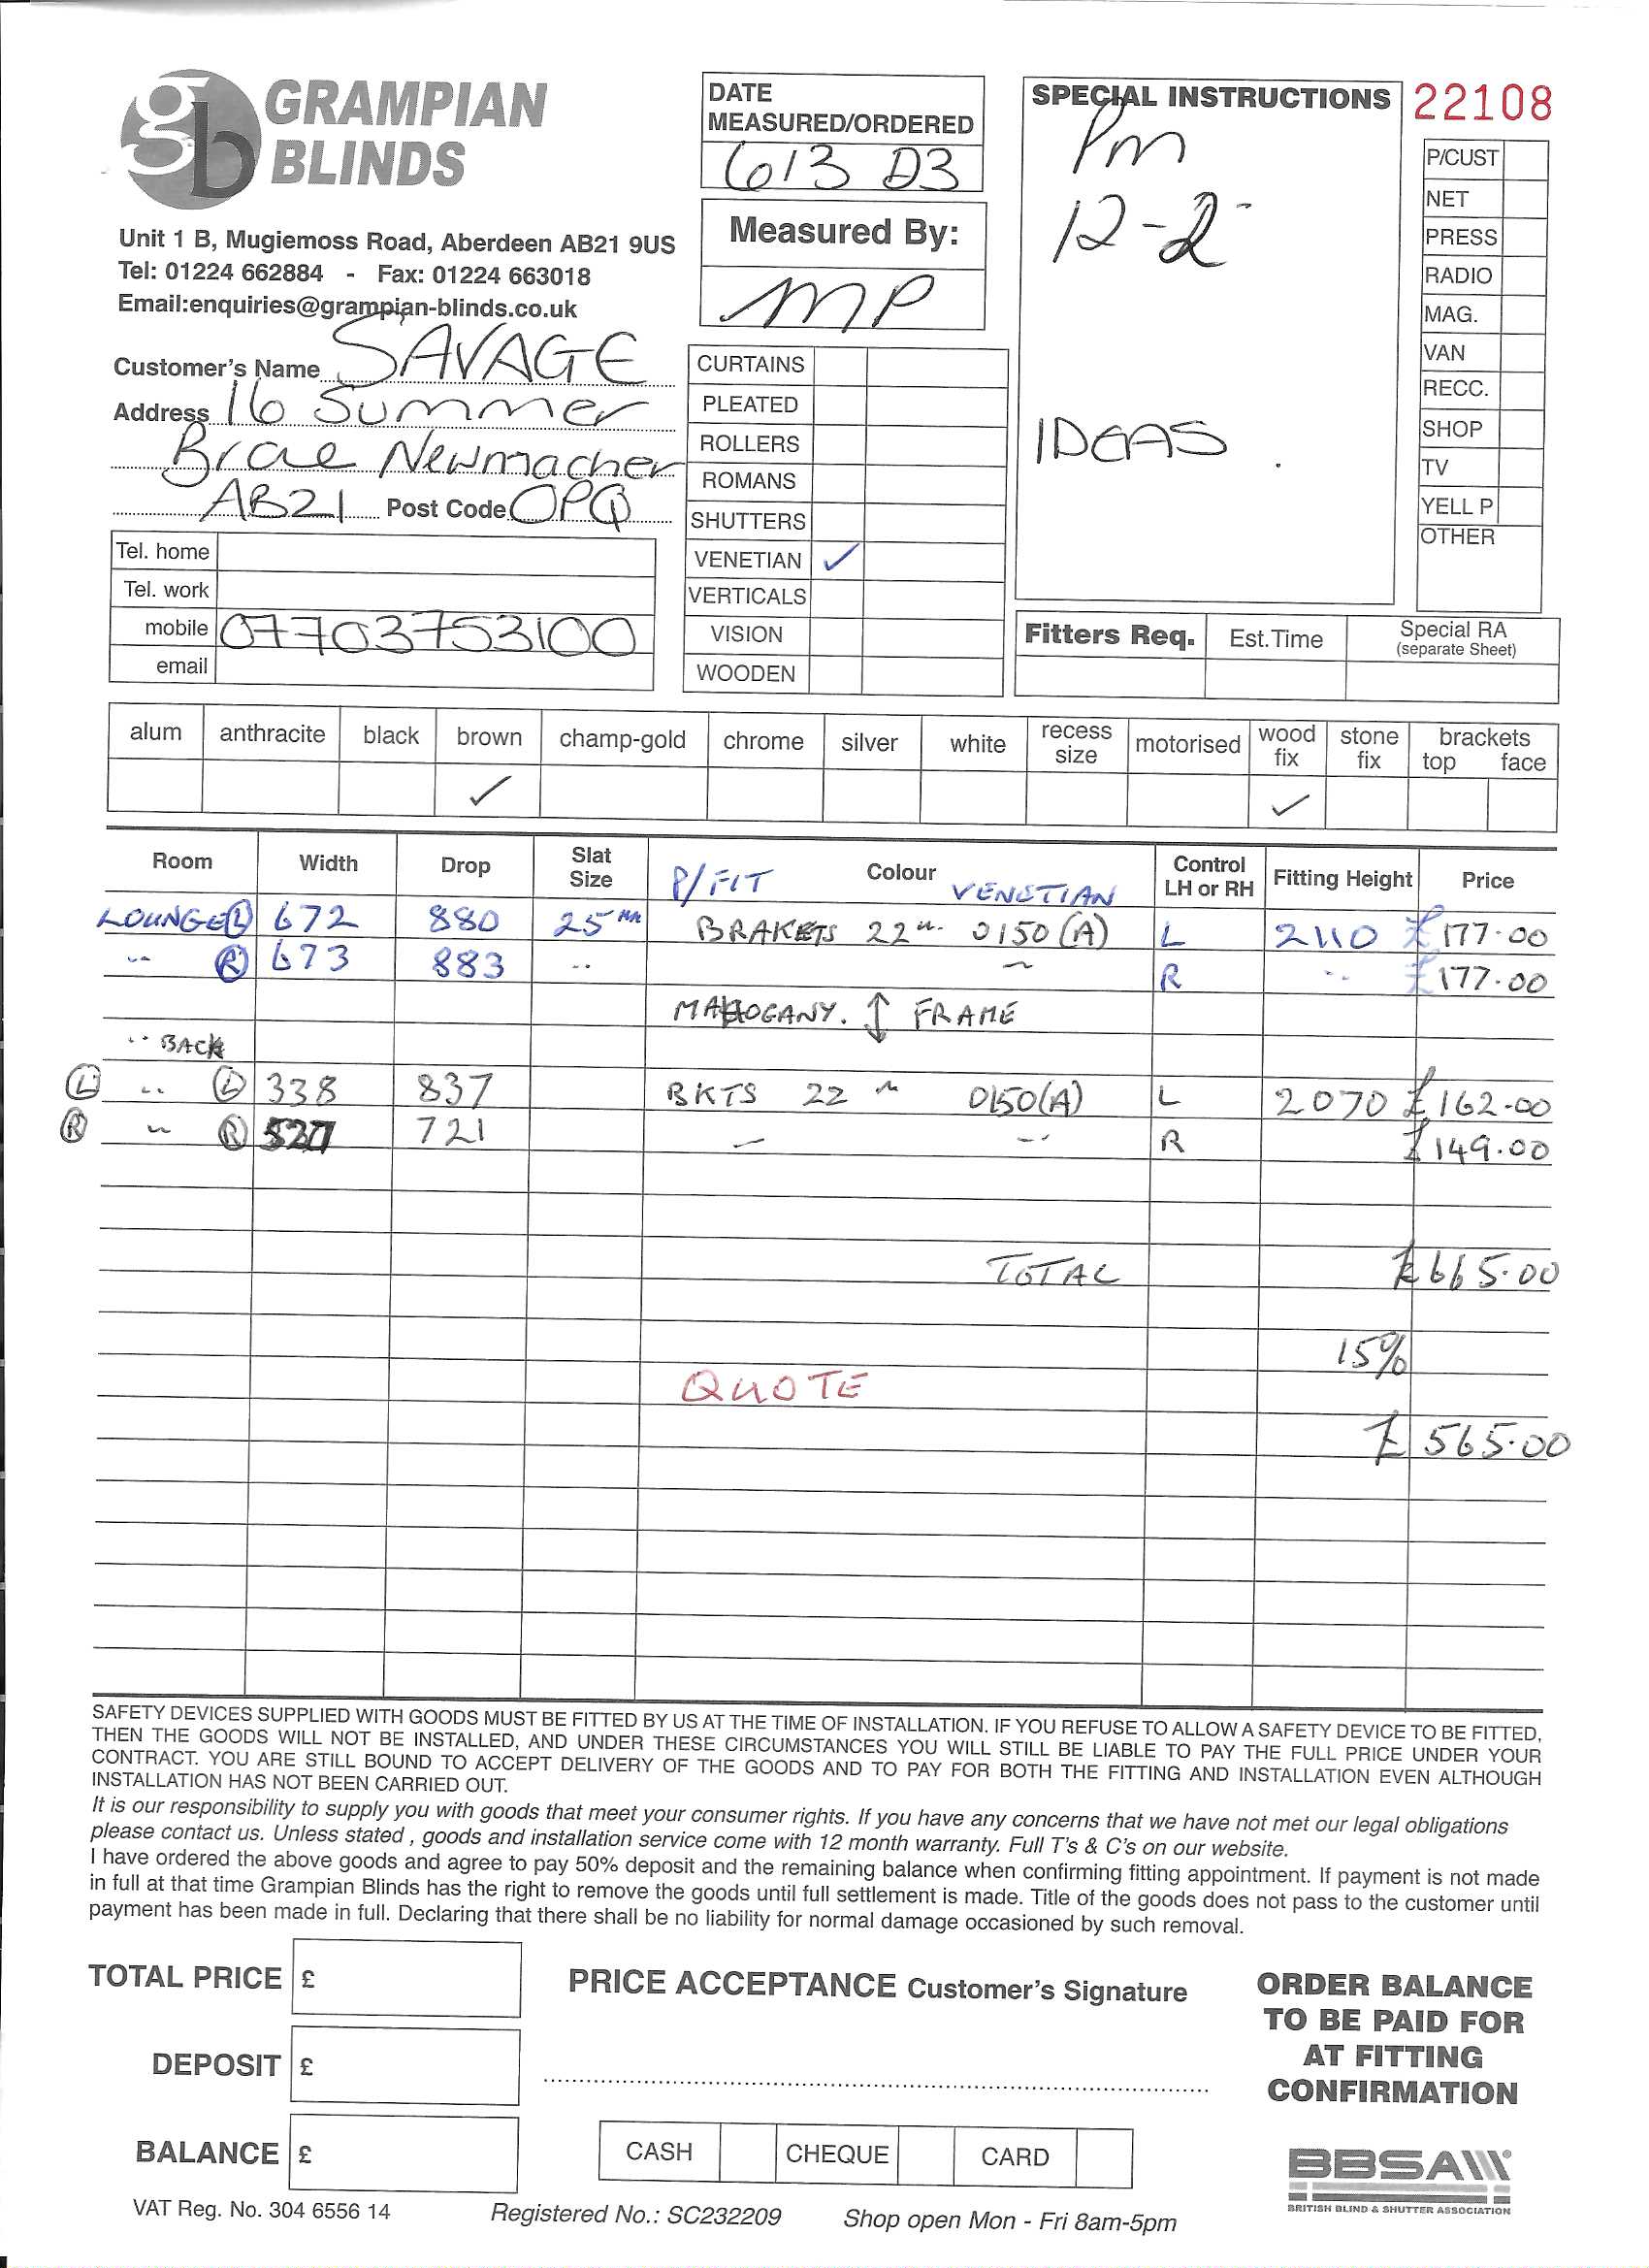 gb GRAMPIAN
BLINDS
Unit 1 B, Mugiemoss Road, Aberdeen AB21 9US
Tel: 01224 662884 - Fax: 01224 663018
Email:enquiries@grampian-blinds.co.uk
Customer's Name SAVAGE
Address 16 Summer
Brae Newmacher
AB21 Post Code OPQ
Tel. home
Tel. work
mobile 07703753100
email
DATE
MEASURED/ORDERED
613 D3
Measured By:
MP
CURTAINS
PLEATED
ROLLERS
ROMANS
SHUTTERS
VENETIAN ✓
VERTICALS
VISION
WOODEN
SPECIAL INSTRUCTIONS
Pm
12-2
IDEAS
22108
P/CUST
NET
PRESS
RADIO
MAG.
VAN
RECC.
SHOP
TV
YELL P
OTHER
Fitters Req. Est.Time Special RA
(separate Sheet)
alum anthracite black brown champ-gold chrome silver white recess size motorised wood fix stone fix brackets top face
✓ ✓
Room Width Drop Slat Size P/FIT Colour VENETIAN Control LH or RH Fitting Height Price
LOUNGE (L) 672 880 25mm BRAKETS 22" 0150(A) L 2110 £177.00
" (R) 673 883 " ~ R " £177.00
MAHOGANY. ↕ FRAME
" BACK
(L) " (L) 338 837 BKTS 22 " 0150(A) L 2070 £162.00
(R) " (R) 721 — " R £149.00
TOTAL £665.00
15%
QUOTE
£565.00
SAFETY DEVICES SUPPLIED WITH GOODS MUST BE FITTED BY US AT THE TIME OF INSTALLATION. IF YOU REFUSE TO ALLOW A SAFETY DEVICE TO BE FITTED,
THEN THE GOODS WILL NOT BE INSTALLED, AND UNDER THESE CIRCUMSTANCES YOU WILL STILL BE LIABLE TO PAY THE FULL PRICE UNDER YOUR
CONTRACT. YOU ARE STILL BOUND TO ACCEPT DELIVERY OF THE GOODS AND TO PAY FOR BOTH THE FITTING AND INSTALLATION EVEN ALTHOUGH
INSTALLATION HAS NOT BEEN CARRIED OUT.
It is our responsibility to supply you with goods that meet your consumer rights. If you have any concerns that we have not met our legal obligations
please contact us. Unless stated , goods and installation service come with 12 month warranty. Full T's & C's on our website.
I have ordered the above goods and agree to pay 50% deposit and the remaining balance when confirming fitting appointment. If payment is not made
in full at that time Grampian Blinds has the right to remove the goods until full settlement is made. Title of the goods does not pass to the customer until
payment has been made in full. Declaring that there shall be no liability for normal damage occasioned by such removal.
TOTAL PRICE £
DEPOSIT £
BALANCE £
PRICE ACCEPTANCE Customer's Signature
CASH CHEQUE CARD
ORDER BALANCE
TO BE PAID FOR
AT FITTING
CONFIRMATION
BBSA
BRITISH BLIND & SHUTTER ASSOCIATION
VAT Reg. No. 304 6556 14 Registered No.: SC232209 Shop open Mon - Fri 8am-5pm